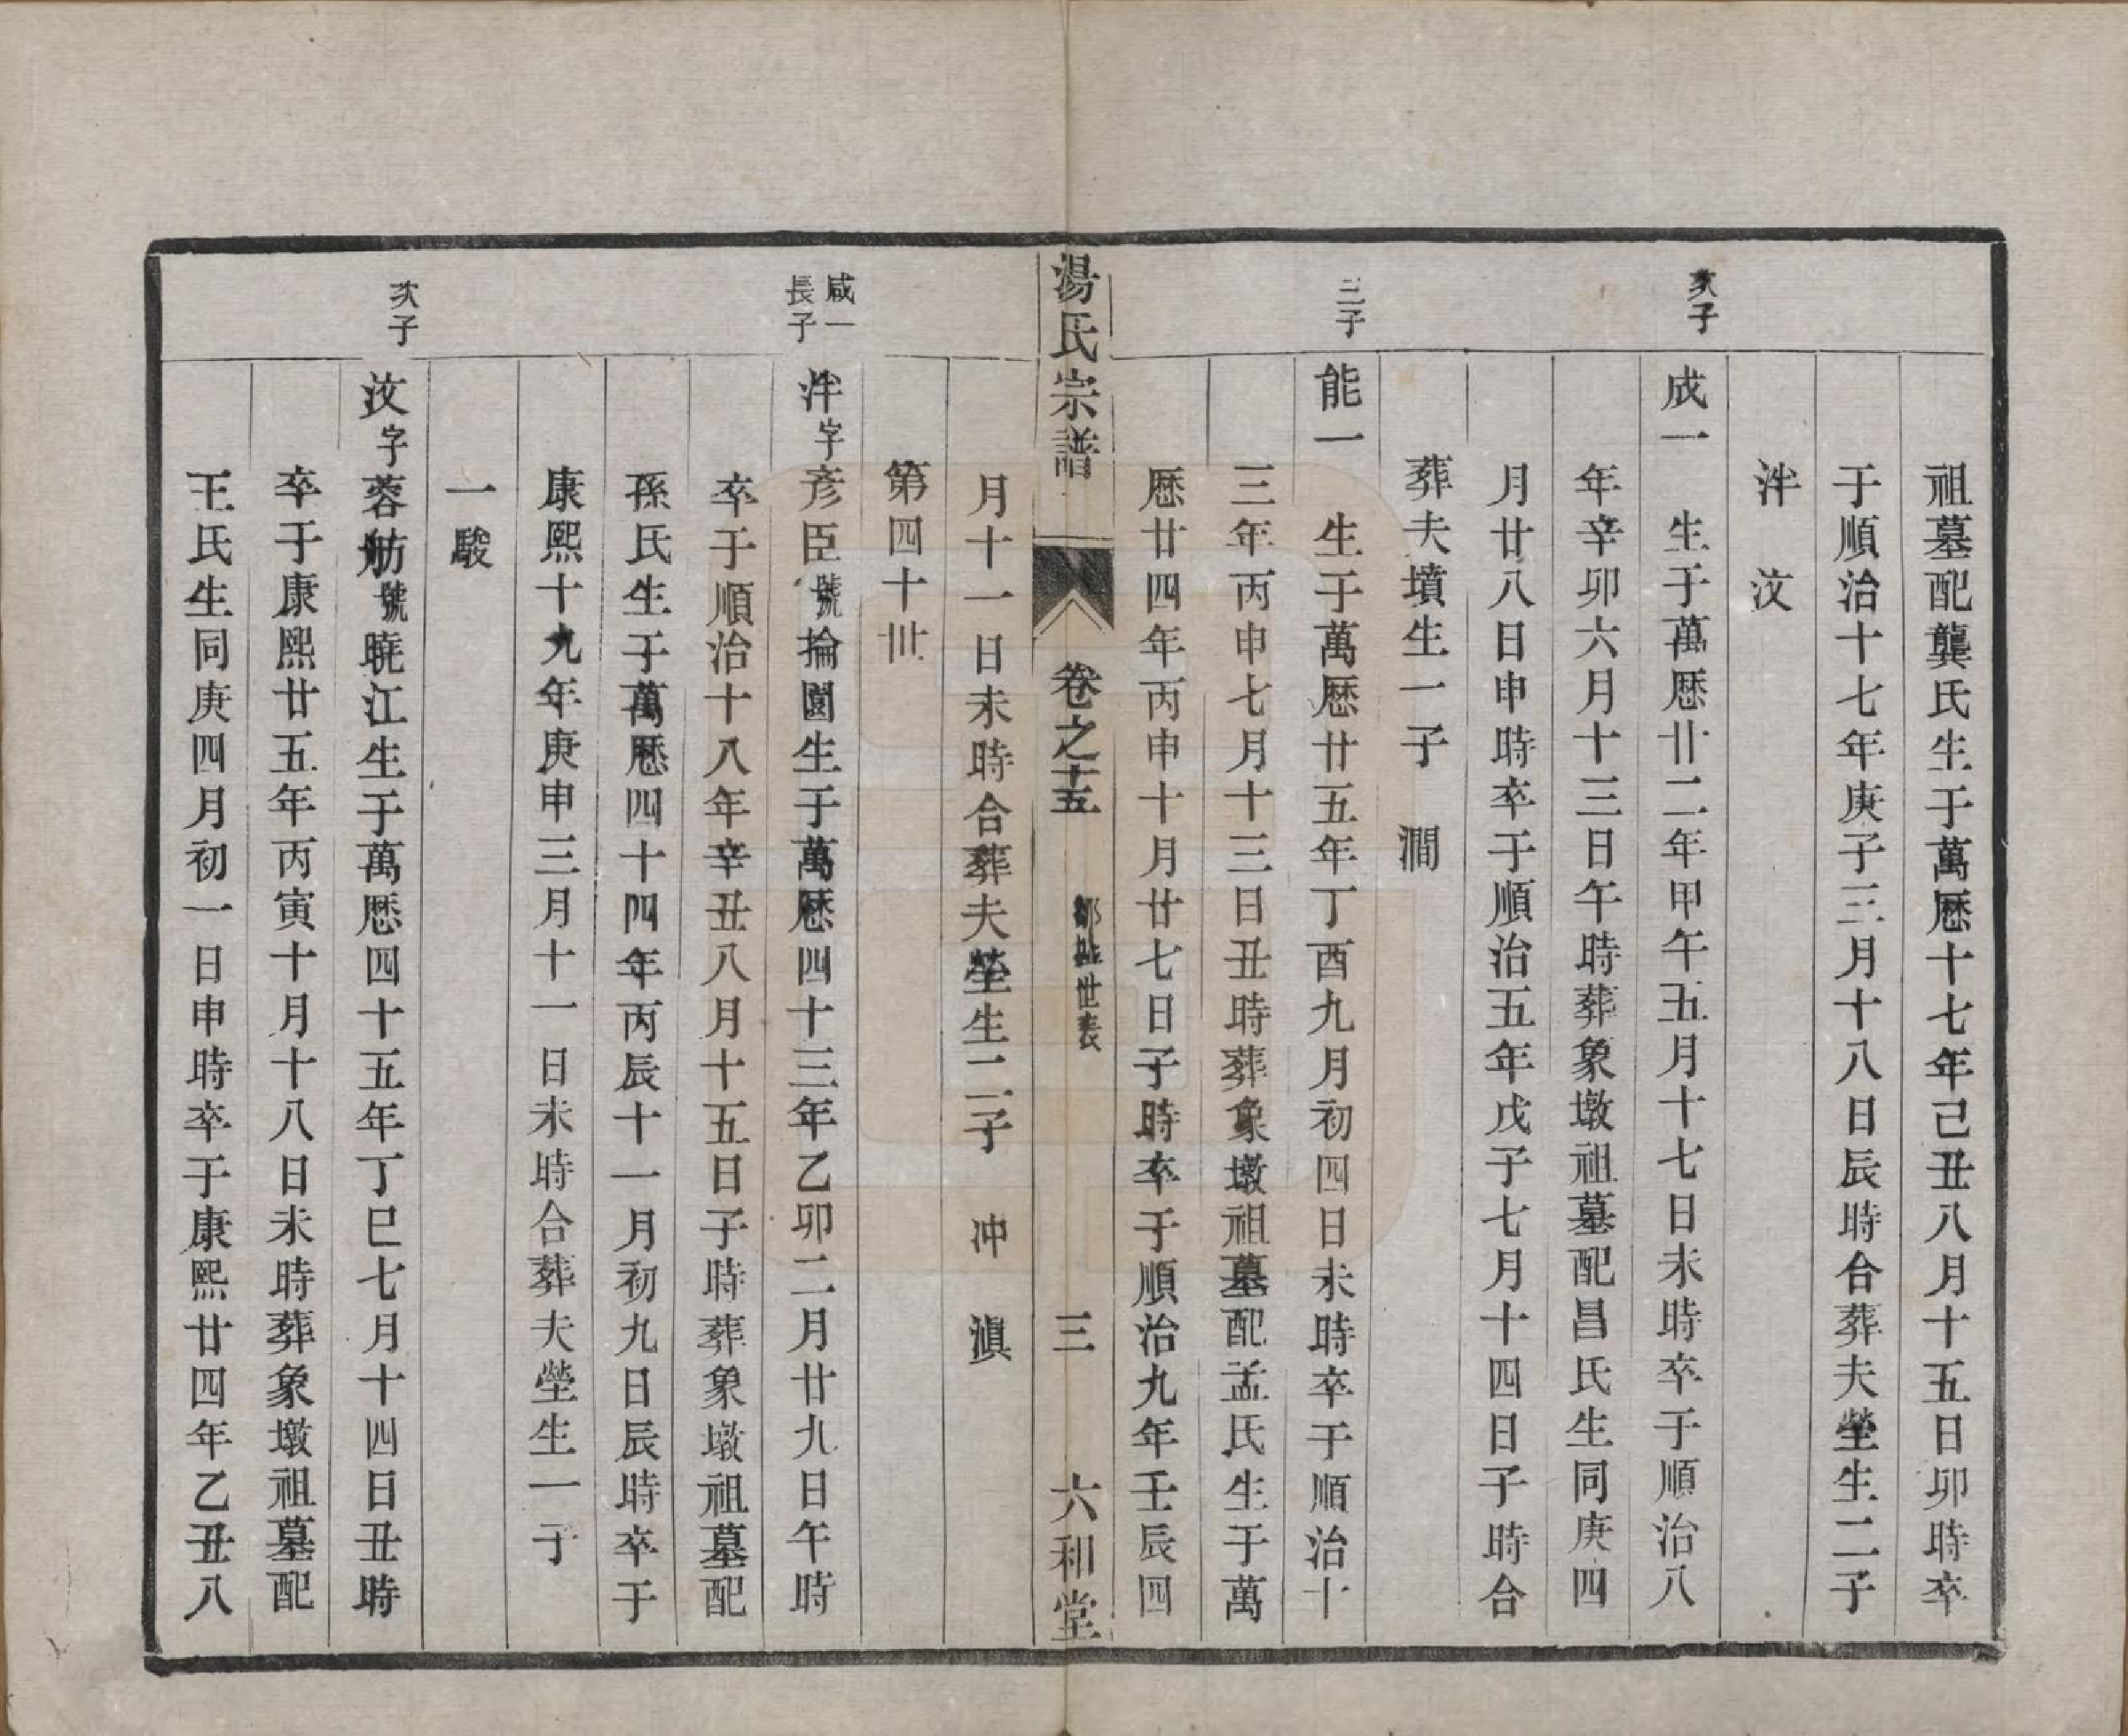 祖墓配龔氏生于萬厯十七年己丑八月十五日卯時卒
于順治十七年庚子三月十八日辰時合葬夫塋生二子
泮　汶
次子
成一　生于萬厯廿二年甲午五月十七日未時卒于順治八
年辛卯六月十三日午時葬象墩祖墓配昌氏生同庚四
月廿八日申時卒于順治五年戊子七月十四日子時合
葬夫墳生一子　澗
三子
能一　生于萬厯廿五年丁酉九月初四日未時卒于順治十
三年丙申七月十三日丑時葬象墩祖墓配孟氏生于萬
厯廿四年丙申十月廿七日子時卒于順治九年壬辰四
湯氏宗譜　卷之十五　世表　三　六和堂
月十一日未時合葬夫塋生二子　冲　滇
第四十世
咸一
長子
泮字彥臣號掄園生于萬厯四十三年乙卯二月廿九日午時
卒于順治十八年辛丑八月十五日子時葬象墩祖墓配
孫氏生于萬厯四十四年丙辰十一月初九日辰時卒于
康熙十九年庚申三月十一日未時合葬夫塋生一子
一駿
次子
汶字蓉舫號曉江生于萬厯四十五年丁巳七月十四日丑時
卒于康熙廿五年丙寅十月十八日未時葬象墩祖墓配
王氏生同庚四月初一日申時卒于康熙廿四年乙丑八